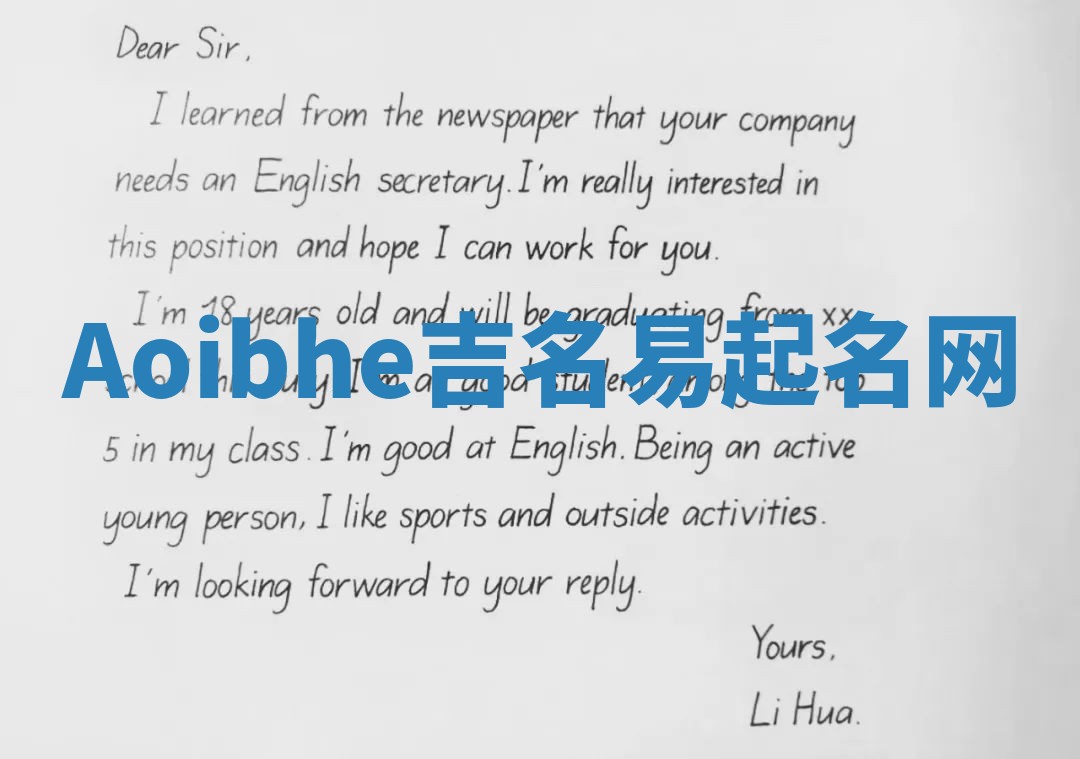 Dear Sir,
I learned from the newspaper that your company
needs an English secretary. I'm really interested in
this position and hope I can work for you.
I'm 18 years old and will be graduating from xx
Aoibhe吉名易起名网
I'm a good student among the top
5 in my class. I'm good at English. Being an active
young person, I like sports and outside activities.
I'm looking forward to your reply.
Yours,
Li Hua.